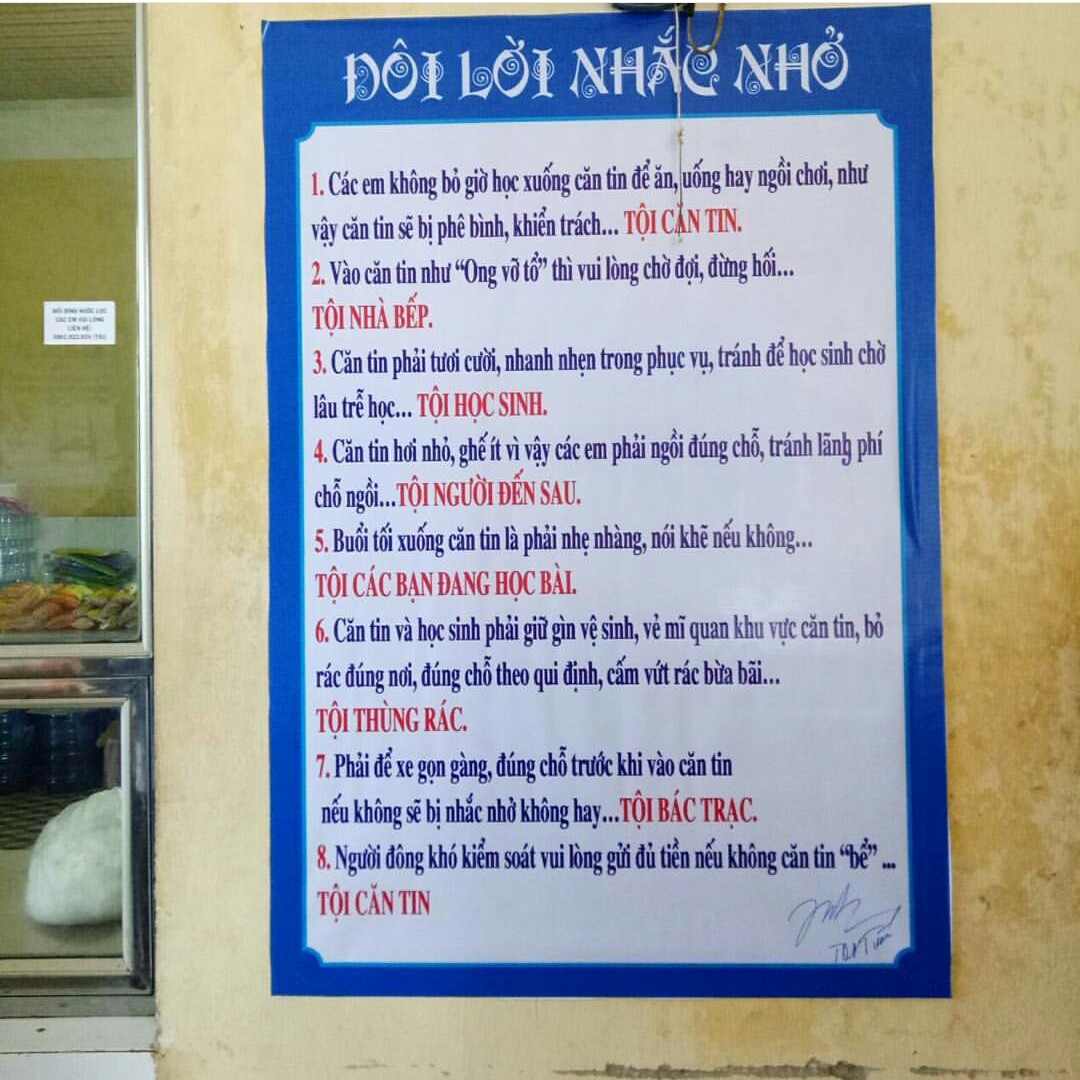 ĐÔI LỜI NHẮC NHỞ
1. Các em không bỏ giờ học xuống căn tin để ăn, uống hay ngồi chơi, như
vậy căn tin sẽ bị phê bình, khiển trách... TỘI CĂN TIN.
2. Vào căn tin như “Ong vỡ tổ” thì vui lòng chờ đợi, đừng hối...
TỘI NHÀ BẾP.
3. Căn tin phải tươi cười, nhanh nhẹn trong phục vụ, tránh để học sinh chờ
lâu trễ học... TỘI HỌC SINH.
4. Căn tin hơi nhỏ, ghế ít vì vậy các em phải ngồi đúng chỗ, tránh lãng phí
chỗ ngồi...TỘI NGƯỜI ĐẾN SAU.
5. Buổi tối xuống căn tin là phải nhẹ nhàng, nói khẽ nếu không...
TỘI CÁC BẠN ĐANG HỌC BÀI.
6. Căn tin và học sinh phải giữ gìn vệ sinh, vẻ mĩ quan khu vực căn tin, bỏ
rác đúng nơi, đúng chỗ theo qui định, cấm vứt rác bừa bãi...
TỘI THÙNG RÁC.
7. Phải để xe gọn gàng, đúng chỗ trước khi vào căn tin
nếu không sẽ bị nhắc nhở không hay...TỘI BÁC TRẠC.
8. Người đông khó kiểm soát vui lòng gửi đủ tiền nếu không căn tin “bể” ...
TỘI CĂN TIN
ĐỔI BÌNH NƯỚC LỌC
CÁC EM VUI LÒNG
LIÊN HỆ: